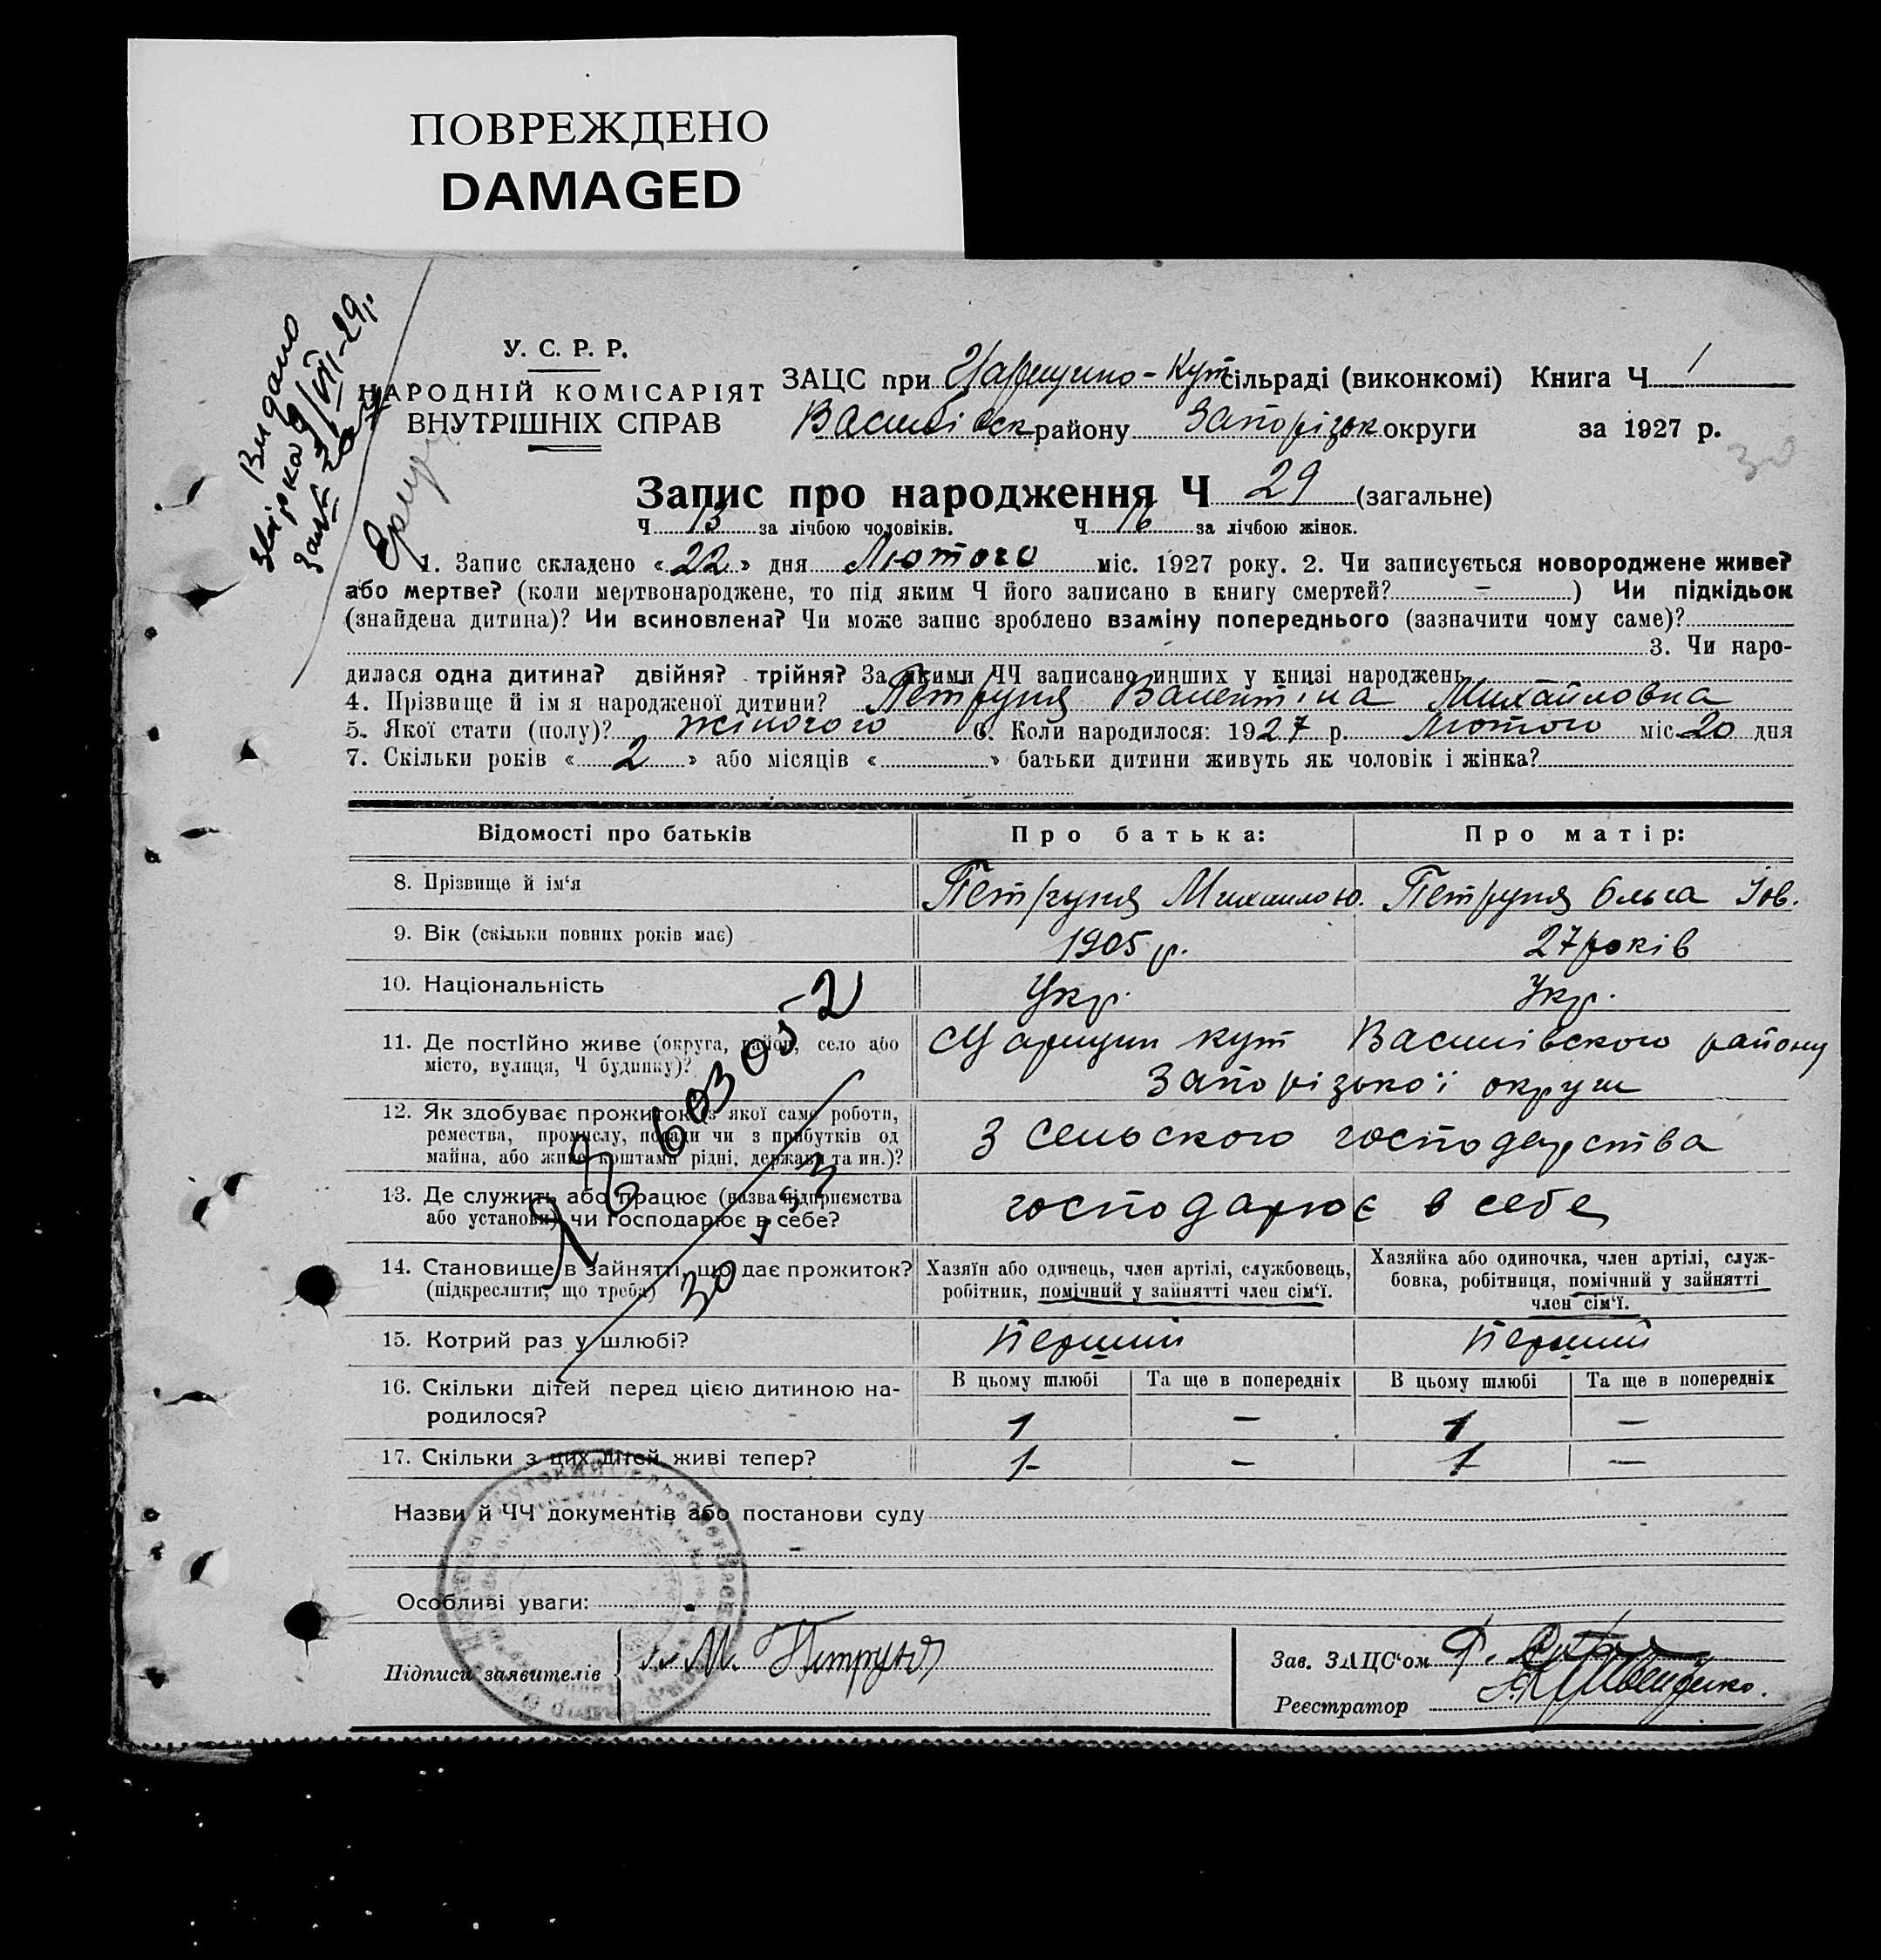 ПОВРЕЖДЕНО
DAMAGED
Видано
У. С. Р. Р.
НАРОДНІЙ КОМІСАРІЯТ
ВНУТРІШНІХ СПРАВ
ЗАЦС при Царицино-Кут сільраді (виконкомі) Книга Ч 1
Василівск району Запорізьк округи за 1927 р.
30
Запис про народження Ч 29 (загальне)
Ч 13 за лічбою чоловіків. Ч 16 за лічбою жінок.
1. Запис складено «22» дня Лютого міс. 1927 року. 2. Чи записується новороджене живе?
або мертве? (коли мертвонароджене, то під яким Ч його записано в книгу смертей? - ) Чи підкідьок
(знайдена дитина)? Чи всиновлена? Чи може запис зроблено взаміну попереднього (зазначити чому саме)?
3. Чи наро-
дилася одна дитина? двійня? трійня? За якими ЧЧ записано инших у книзі народжень
4. Прізвище й ім я народженої дитини? Петруня Валентіна Михайловна
5. Якої стати (полу)? жіночого 6. Коли народилося: 1927 р. лютого міс 20 дня
7. Скільки років «2» або місяців « » батьки дитини живуть як чоловік і жінка?
Відомості про батьків Про батька: Про матір:
8. Прізвище й ім‘я Петруня Михаил Ю. Петруня Ольга Іов.
9. Вік (скільки повних років має) 1905 р. 27 років
10. Національність Укр. Укр.
11. Де постійно живе (округа, район, село або
місто, вулиця, Ч будинку)? Царицин кут Василівського району
Запорізької округи
12. Як здобуває прожиток (з якої саме роботи,
ремества, промислу, посади чи з прибутків од
майна, або живе коштами рідні, держави та ин.)? З сельского господарства
13. Де служить або працює (назва підприємства
або установи) чи господарює в себе? господарює в себе
14. Становище в зайнятті, що дає прожиток?
(підкреслити, що треба)
Хазяїн або одинець, член артілі, службовець,
робітник, помічний у зайнятті член сім‘ї.
Хазяйка або одиночка, член артілі, служ-
бовка, робітниця, помічний у зайнятті
член сім‘ї.
15. Котрий раз у шлюбі? Перший Перший
16. Скільки дітей перед цією дитиною на-
родилося?
В цьому шлюбі Та ще в попередніх В цьому шлюбі Та ще в попередніх
1 — 1 —
17. Скільки з цих дітей живі тепер? 1 — 1 —
603052
Назви й ЧЧ документів або постанови суду
Особливі уваги:
Підписи заявителів М. Петруня
Зав. ЗАЦС‘ом
Реєстратор Швенденко.